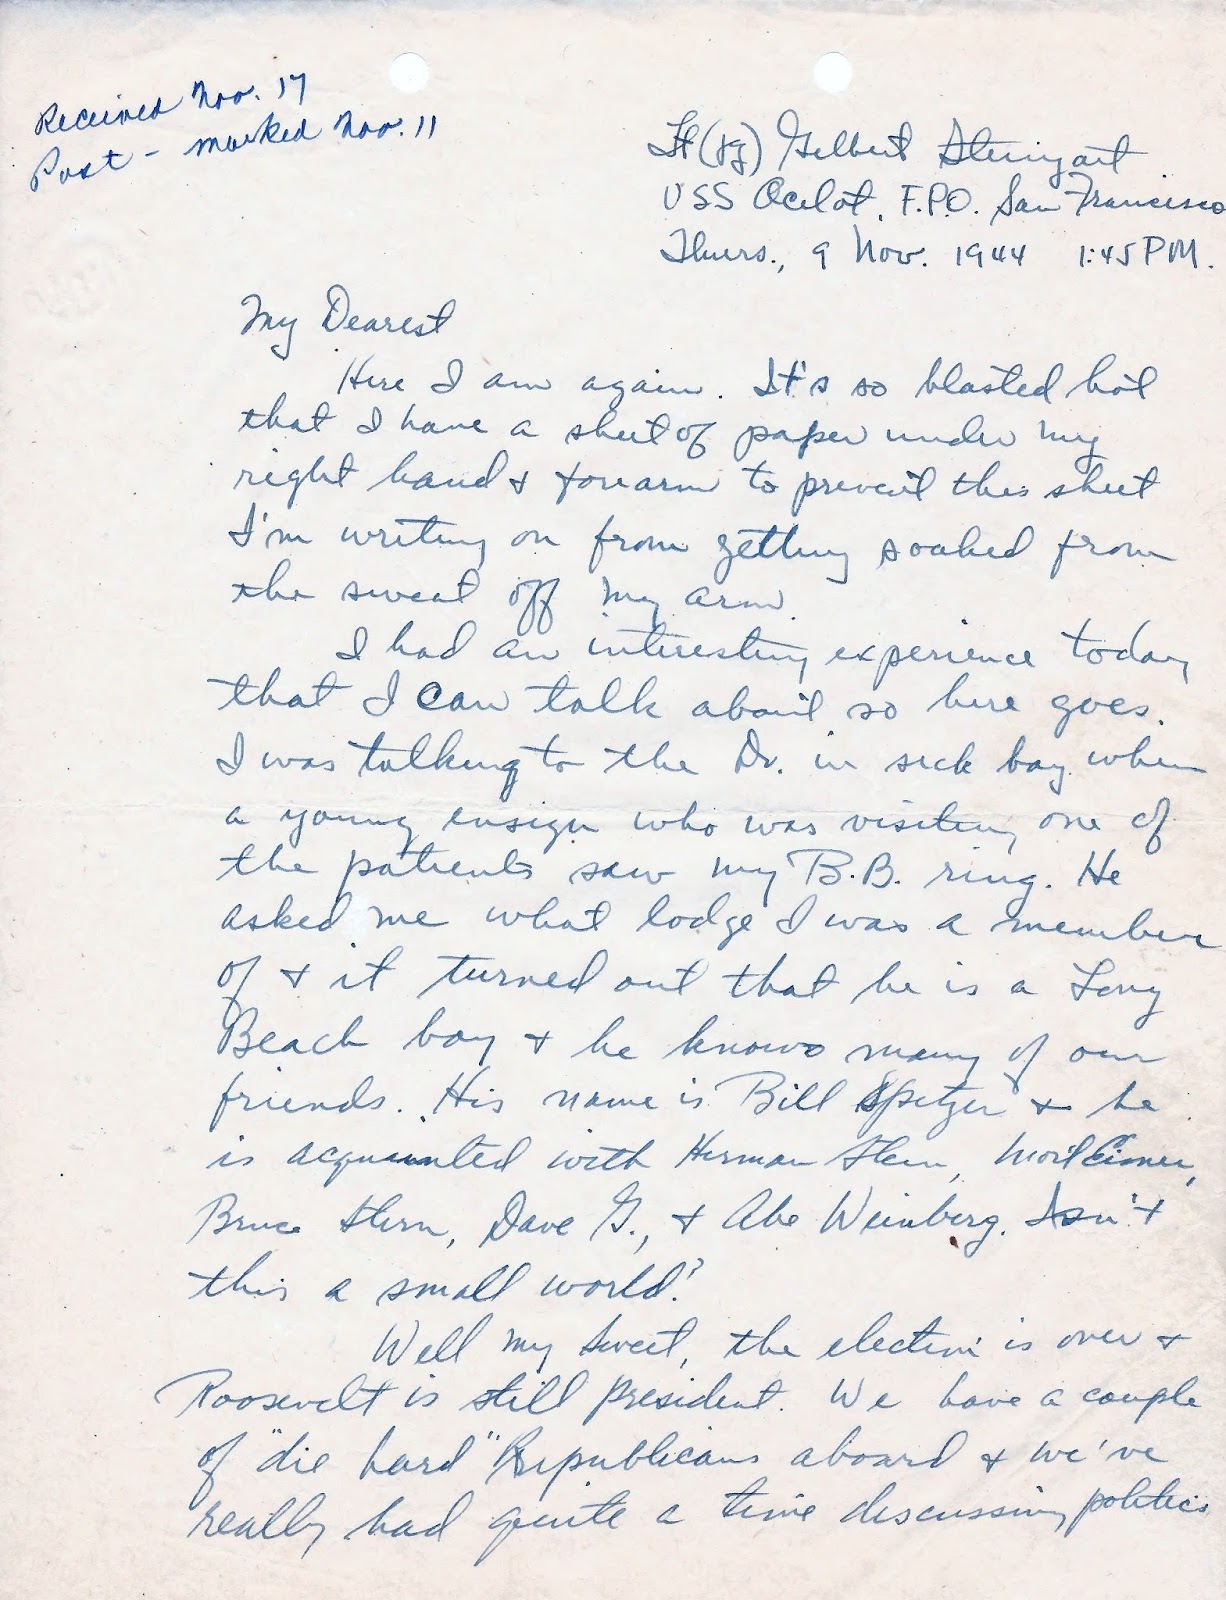 Received Nov. 17
Post - marked Nov. 11
Lt (jg) Gilbert Steingart
USS Ocelot, F.P.O. San Francisco
Thurs., 9 Nov. 1944 1:45 PM.
My Dearest
Here I am again. It's so blasted hot
that I have a sheet of paper under my
right hand & forearm to prevent this sheet
I'm writing on from getting soaked from
the sweat off my arm.
I had an interesting experience today
that I can talk about so here goes.
I was talking to the Dr. in sick bay when
a young ensign who was visiting one of
the patients saw my B.B. ring. He
asked me what lodge I was a member
of & it turned out that he is a Long
Beach boy & he knows many of our
friends. His name is Bill Spetzer & he
is acquainted with Herman Stern,
Bruce Stern, Dave G., & Abe Weinberg. Isn't
this a small world?
Well my sweet, the election is over &
Roosevelt is still president. We have a couple
of "die hard" Republicans aboard & we've
really had quite a time discussing politics